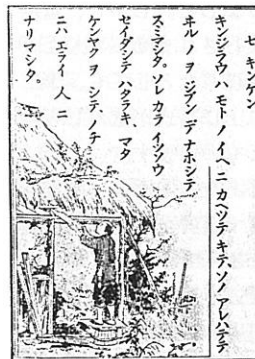 七 キンケン
キンジラウハモトノイヘニカヘツテキテ、ソノアレハテテ
ヰルノヲジブンデナホシテ
スミマシタ。ソレカライツソウ
セイダシテハタラキ、マタ
ケンヤクヲシテ、ノチ
ニハエライ人ニ
ナリマシタ。